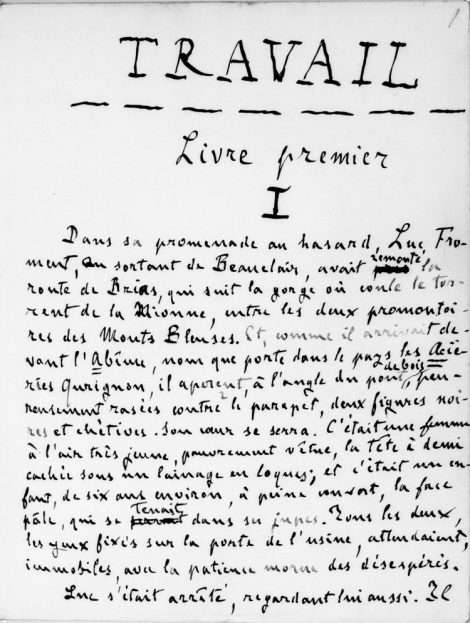 1
TRAVAIL
Livre premier
I
Dans sa promenade au hasard, Luc Fro-
ment, en sortant de Beauclair, avait remonté la
route de Brias, qui suit la gorge où coule le tor-
rent de la Mionne, entre les deux promontoi-
res des Monts Bleuses. Et, comme il arrivait de-
vant l'Abîme, nom que porte dans le pays les Acié-
ries Qurignon, il aperçut, à l'angle du pont de bois, peu-
reusement rasées contre le parapet, deux figures noi-
res et chétives. Son cœur se serra. C'était une femme
à l'air très jeune, pauvrement vêtue, la tête à demi
cachée sous un lainage en loques; et c'était un en-
fant, de six ans environ, à peine couvert, la face
pâle, qui se tenait dans ses jupes. Tous les deux,
les yeux fixés sur la porte de l'usine, attendaient,
immobiles, avec la patience morne des désespérés.
Luc s'était arrêté, regardant lui aussi. Il